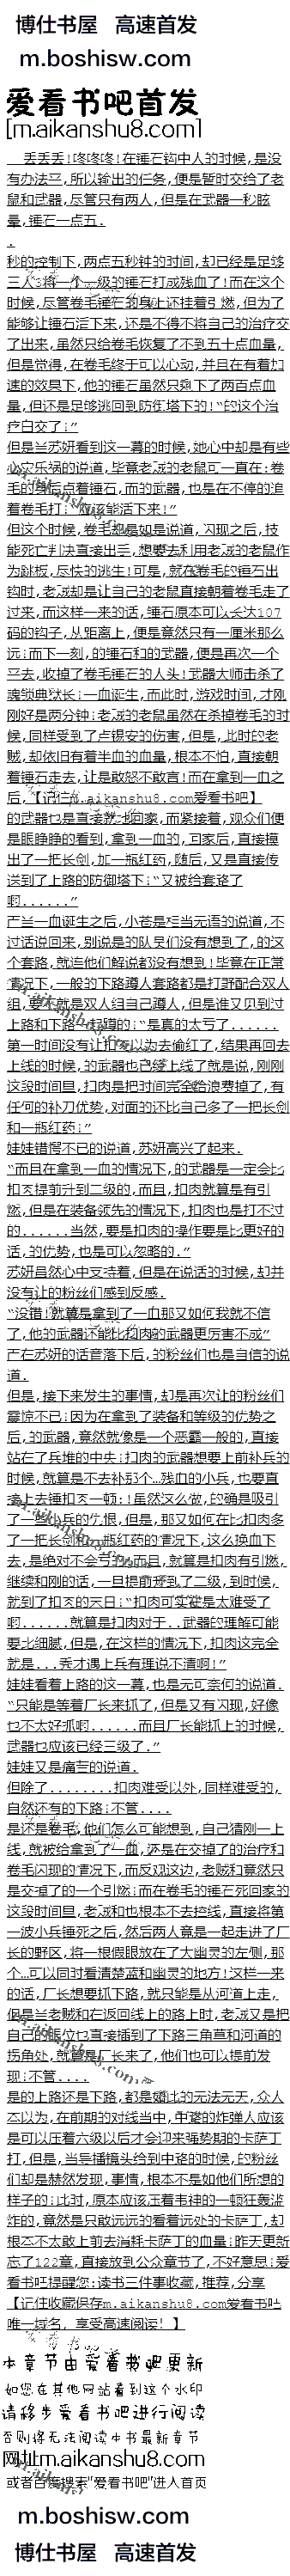 博仕书屋 高速首发
m.boshisw.com
爱看书吧首发
[m.aikanshu8.com]
丢丢丢!咚咚咚!在锤石钩中人的时候,是没
有办法平,所以输出的任务,便是暂时交给了老
鼠和武器,尽管只有两人,但是在武器一秒眩
晕,锤石一点五.
.
秒的控制下,两点五秒钟的时间,却已经是足够
三人将一个一级的锤石打成残血了!而在这个
时候,尽管卷毛锤石的身上还挂着引燃,但为了
能够让锤石活下来,还是不得不将自己的治疗交
了出来,虽然只给卷毛恢复了不到五十点血量,
但是觉得,在卷毛终于可以心动,并且在有着加
速的效果下,他的锤石虽然只剩下了两百点血
量,但还是足够逃回到防御塔下的!"的这个治
疗白交了:"
但是当苏妍看到这一幕的时候,她心中却是有些
幸灾乐祸的说道,毕竟老贼的老鼠可一直在:卷
毛的锤石点着锤石,而的武器,也是在不停的追
着卷毛打:"最好能活下来!"
但这个时候,卷毛却是如是说道,闪现之后,技
能死亡判决直接出手,想要去利用老贼的老鼠作
为跳板,尽快的逃生!可是,就在卷毛的锤石出
钩时,老贼却是让自己的老鼠直接朝着卷毛走了
过来,而这样一来的话,锤石原本可以长达107
码的钩子,从距离上,便是竟然只有一厘米那么
远:而下一刻,的锤石和的武器,便是再次一个
平去,收掉了卷毛锤石的人头!武器大师击杀了
魂锁典狱长:一血诞生,而此时,游戏时间,才刚
刚好是两分钟:老贼的老鼠虽然在杀掉卷毛的时
候,同样受到了卢锡安的伤害,但是,此时的老
贼,却依旧有着半血的血量,根本不怕,直接朝
着锤石走去,让是敢怒不敢言!而在拿到一血之
后,【记住m.aikanshu8.com爱看书吧】
的武器也是直接就地回家,而紧接着,观众们便
是眼睁睁的看到,拿到一血的,回家后,直接摸
出了一把长剑,加一瓶红药,随后,又是直接传
送到了上路的防御塔下:"又被给套路了
啊......"
在第一血诞生之后,小苍是相当无语的说道,不
过话说回来,别说是的队员们没有想到了,的这
个套路,就连他们解说都没有想到!毕竟在正常
情况下,一般的下路蹲人套路都是打野配合双人
组,要不就是双人组自己蹲人,但是谁又见到过
上路和下路一起蹲的:"是真的太亏了......
第一时间没有让扣肉去偷红了,结果再回去
上线的时候,的武器也已经上线了就是说,刚刚
这段时间里,扣肉是把时间完全给浪费掉了,有
任何的补刀优势,对面的还比自己多了一把长剑
和一瓶红药:"
娃娃错愕不已的说道,苏妍高兴了起来.
"而且在拿到一血的情况下,的武器是一定会比
扣肉提前升到二级的,而且,扣肉就算是有引
燃,但是在装备领先的情况下,扣肉也是打不过
的......当然,要是扣肉的操作要是比更好的
话,的优势,也是可以忽略的."
苏妍虽然心中支持着,但是在说话的时候,却并
没有让的粉丝们感到反感.
"没错!就算是拿到了一血那又如何我就不信
了,他的武器还能比扣肉的武器更厉害不成"
而在苏妍的话音落下后,的粉丝们也是自信的说
道.
但是,接下来发生的事情,却是再次让的粉丝们
震惊不已:因为在拿到了装备和等级的优势之
后,的武器,竟然就像是一个恶霸一般的,直接
站在了兵堆的中央:扣肉的武器想要上前补兵的
时候,就算是不去补那个…残血的小兵,也要直
接上去锤扣肉一顿:!虽然这么做,的确是吸引
了一些小兵的仇恨,但是,那又如何在比扣肉多
了一把长剑和一瓶红药的情况下,这么换血下
去,是绝对不会亏的!而且,就算扣肉有引燃,
继续和刚的话,一旦提前升到了二级,到时候,
就到了扣肉的末日:"扣肉可实在是太难受了
啊......就算是扣肉对于..武器的理解可能
要比细腻,但是,在这样的情况下,扣肉这完全
就是...秀才遇上兵有理说不清啊!"
娃娃看着上路的这一幕,也是无可奈何的说道.
"只能是等着厂长来抓了,但是又有闪现,好像
也不太好抓啊......而且厂长能抓上的时候,
武器也应该已经三级了."
娃娃又是痛苦的说道.
但除了........扣肉难受以外,同样难受的,
自然还有的下路:不管....
是还是卷毛,他们怎么可能想到,自己猜刚一上
线,就被给拿到了一血,还是在交掉了的治疗和
卷毛闪现的情况下,而反观这边,老贼和竟然只
是交掉了的一个引燃:而在卷毛的锤石死回家的
这段时间里,老贼和也根本不去控线,直接将第
一波小兵锤死之后,然后两人竟是一起走进了厂
长的野区,将一根假眼放在了大幽灵的左侧,那
个…可以同时看清楚蓝和幽灵的地方!这样一来
的话,厂长想要抓下路,就只能是从河道上走,
但是当老贼和在返回线上的路上时,老贼又是把
自己的眼位也直接插到了下路三角草和河道的
拐角处,就算是厂长来了,他们也可以提前发
现:不管....
是的上路还是下路,都是如此的无法无天,众人
本以为,在前期的对线当中,中路的炸弹人应该
是可以压着六级以后才会迎来强势期的卡萨丁
打,但是,当导播镜头给到中路的时候,的粉丝
们却是赫然发现,事情,根本不是如他们所想的
样子的:此时,原本应该压着韦神的一顿狂轰滥
炸的,竟然是只敢远远的看着远处的卡萨丁,却
根本不太敢上前去消耗卡萨丁的血量:昨天更新
忘了122章,直接放到公众章节了,不好意思:爱
看书吧提醒您:读书三件事收藏,推荐,分享
【记住收藏保存m.aikanshu8.com爱看书吧
唯一域名, 享受高速阅读! 】
本章节由爱看书吧更新
如您在其他网站看到这个水印
请移步爱看书吧进行阅读
否则将无法阅读本书最新章节
网址m.aikanshu8.com
或者百度搜索"爱看书吧"进入首页
m.boshisw.com
博仕书屋 高速首发